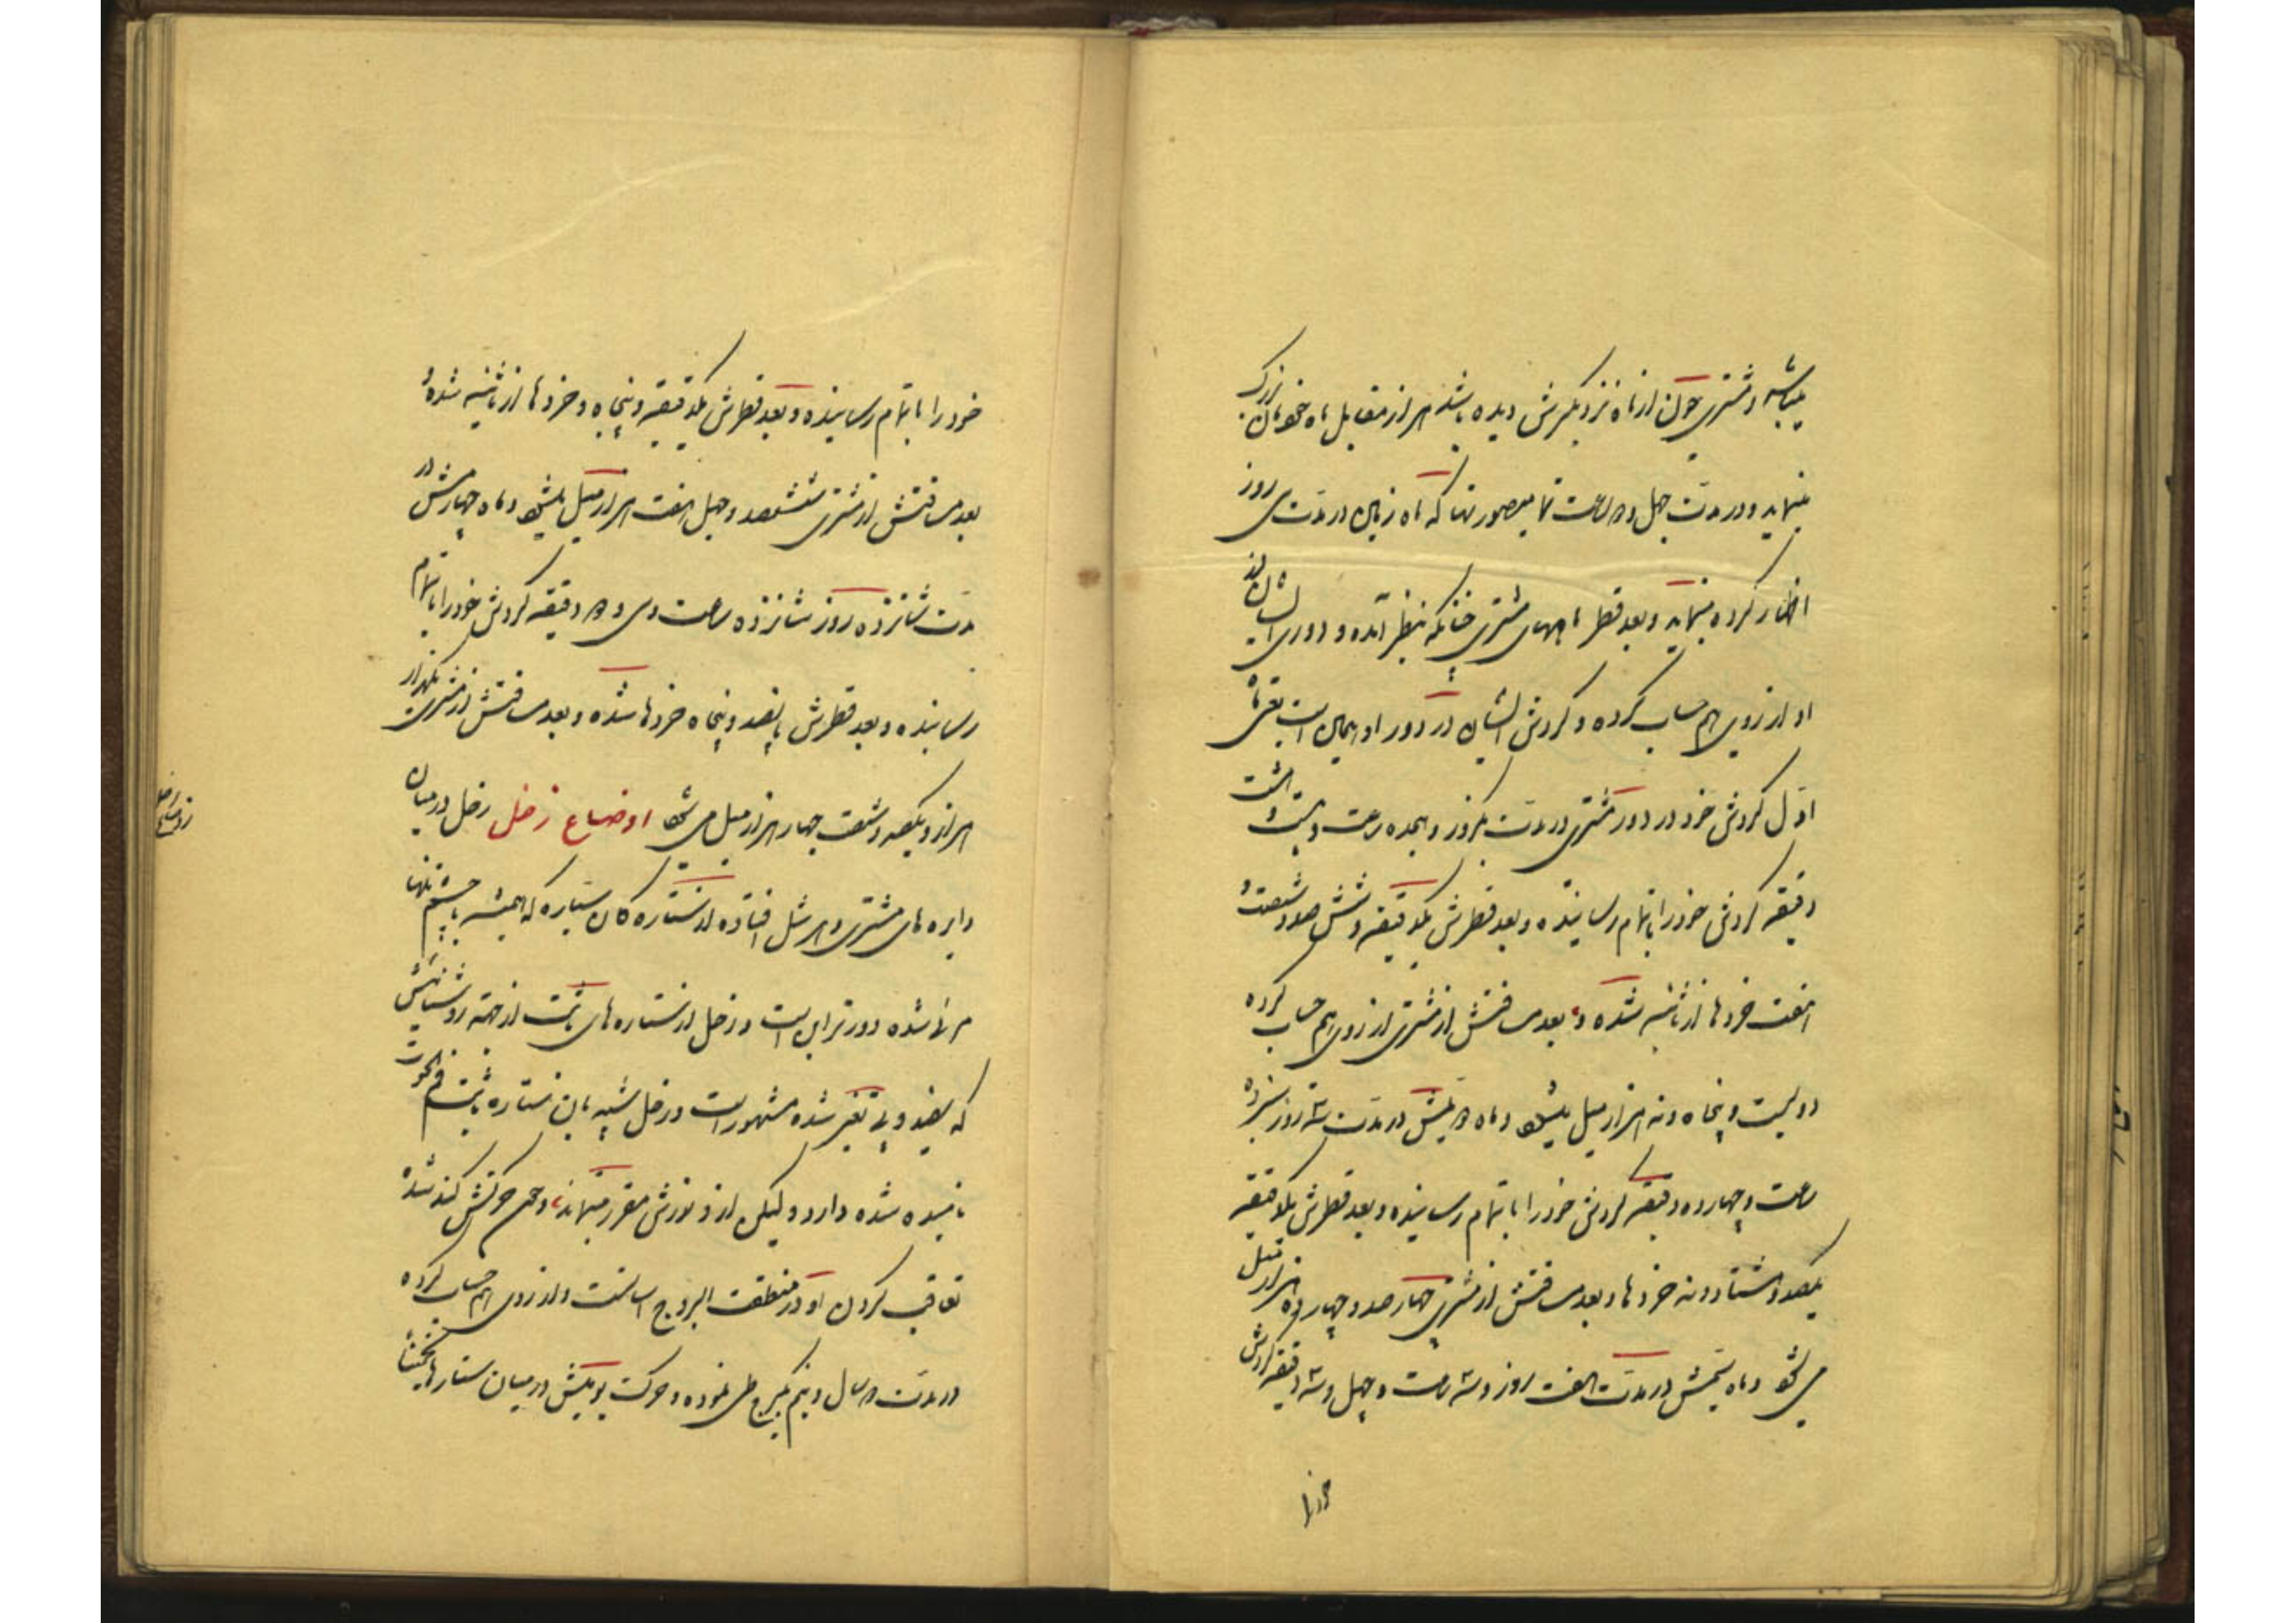 میباشد و مشتری چون از ماه نزدیکترش دیده باشد هزار از مقابل ماه خودمان بزرگ
مینماید و در مدت چهل و دو ساعت تمام صورتها که ماه زمان در مدت سی روز
اظهار کرده مینماید و بعد قطر ماههای مشتری چنانکه بنظر آمده و دوری ایشان از
او از روی هم حساب کرده و گردش ایشان در دور او همان است یعنی ماه
اول گردش خود در دور مشتری در مدت یکروز و هجده ساعت و بیست و هشت
دقیقه گردش خود را باتمام رسانیده و بعد قطرش یکدقیقه و شش صد و شصت و
هفت خردها از ثانیه شده و بعد مسافتش از مشتری از روی هم حساب کرده
دویست و پنجاه و نه هزار میل میشود و ماه دویمش در مدت سه روز سیزده
ساعت و چهارده دقیقه گردش خود را باتمام رسانیده و بعد قطرش یکدقیقه
یکصد و هشتاد و نه خردها و بعد مسافتش از مشتری چهار صد و چهارده هزار میل
می شود و ماه سیمش در مدت هفت روز و سه ساعت و چهل و سه دقیقه گردش
خود را
خود را باتمام رسانیده و بعد قطرش یکدقیقه و پنجاه و خردها از ثانیه شده و
بعد مسافتش از مشتری ششصد و چهل هفت هزار میل میشود و ماه چهارمش در
مدت شانزده روز شانزده ساعت و سی و دو دقیقه گردش خود را باتمام
رسانیده و بعد قطرش پانصد و پنجاه خردها شده و بعد مسافتش از مشتری یکهزار
هزار و یکصد و شصت چهار هزار میل می شود اوضاع زحل زحل در میان
دایره های مشتری و هرشل افتاده از ستاره گان سیاره که همیشه با چشم تنها
مرئی شده دورتر این است و زحل از ستاره های ثابت از جهة روشنائیش
که سفید و بی تغیر شده مشهور است و زحل شبیه بان ستاره ثابت فم الحوت
نامیده شده دارد و لیکن از و نورش مقرر مینماید، و حرکتش کند شده
تعاقب کردن او در منطقت البروج اسانست و از روی هم حساب کرده
در مدت دو سال و نیم یکبرج طی نموده و حرکت یومیش در میان ستارها
اوضاع زحل